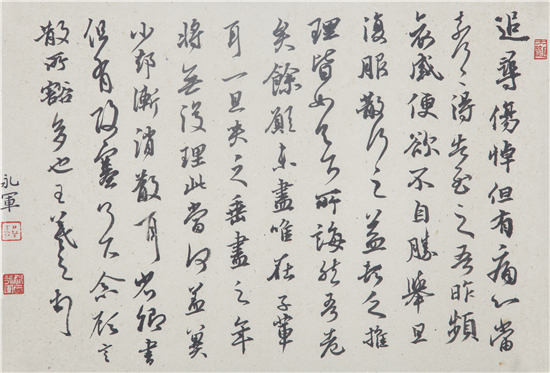 追尋傷悼但有痛心當
奈何〻得告慰之吾昨頻
哀感便欲不自勝舉旦
復服散行之益頓乏推
理皆如足下所誨然吾老
矣餘願未盡唯在子輩
耳一旦哭之垂盡之年
將無復理此當何益冀
小卻漸消散耳省卿書
但有酸塞足下念顧言
散所豁多也王羲之頓首
永軍